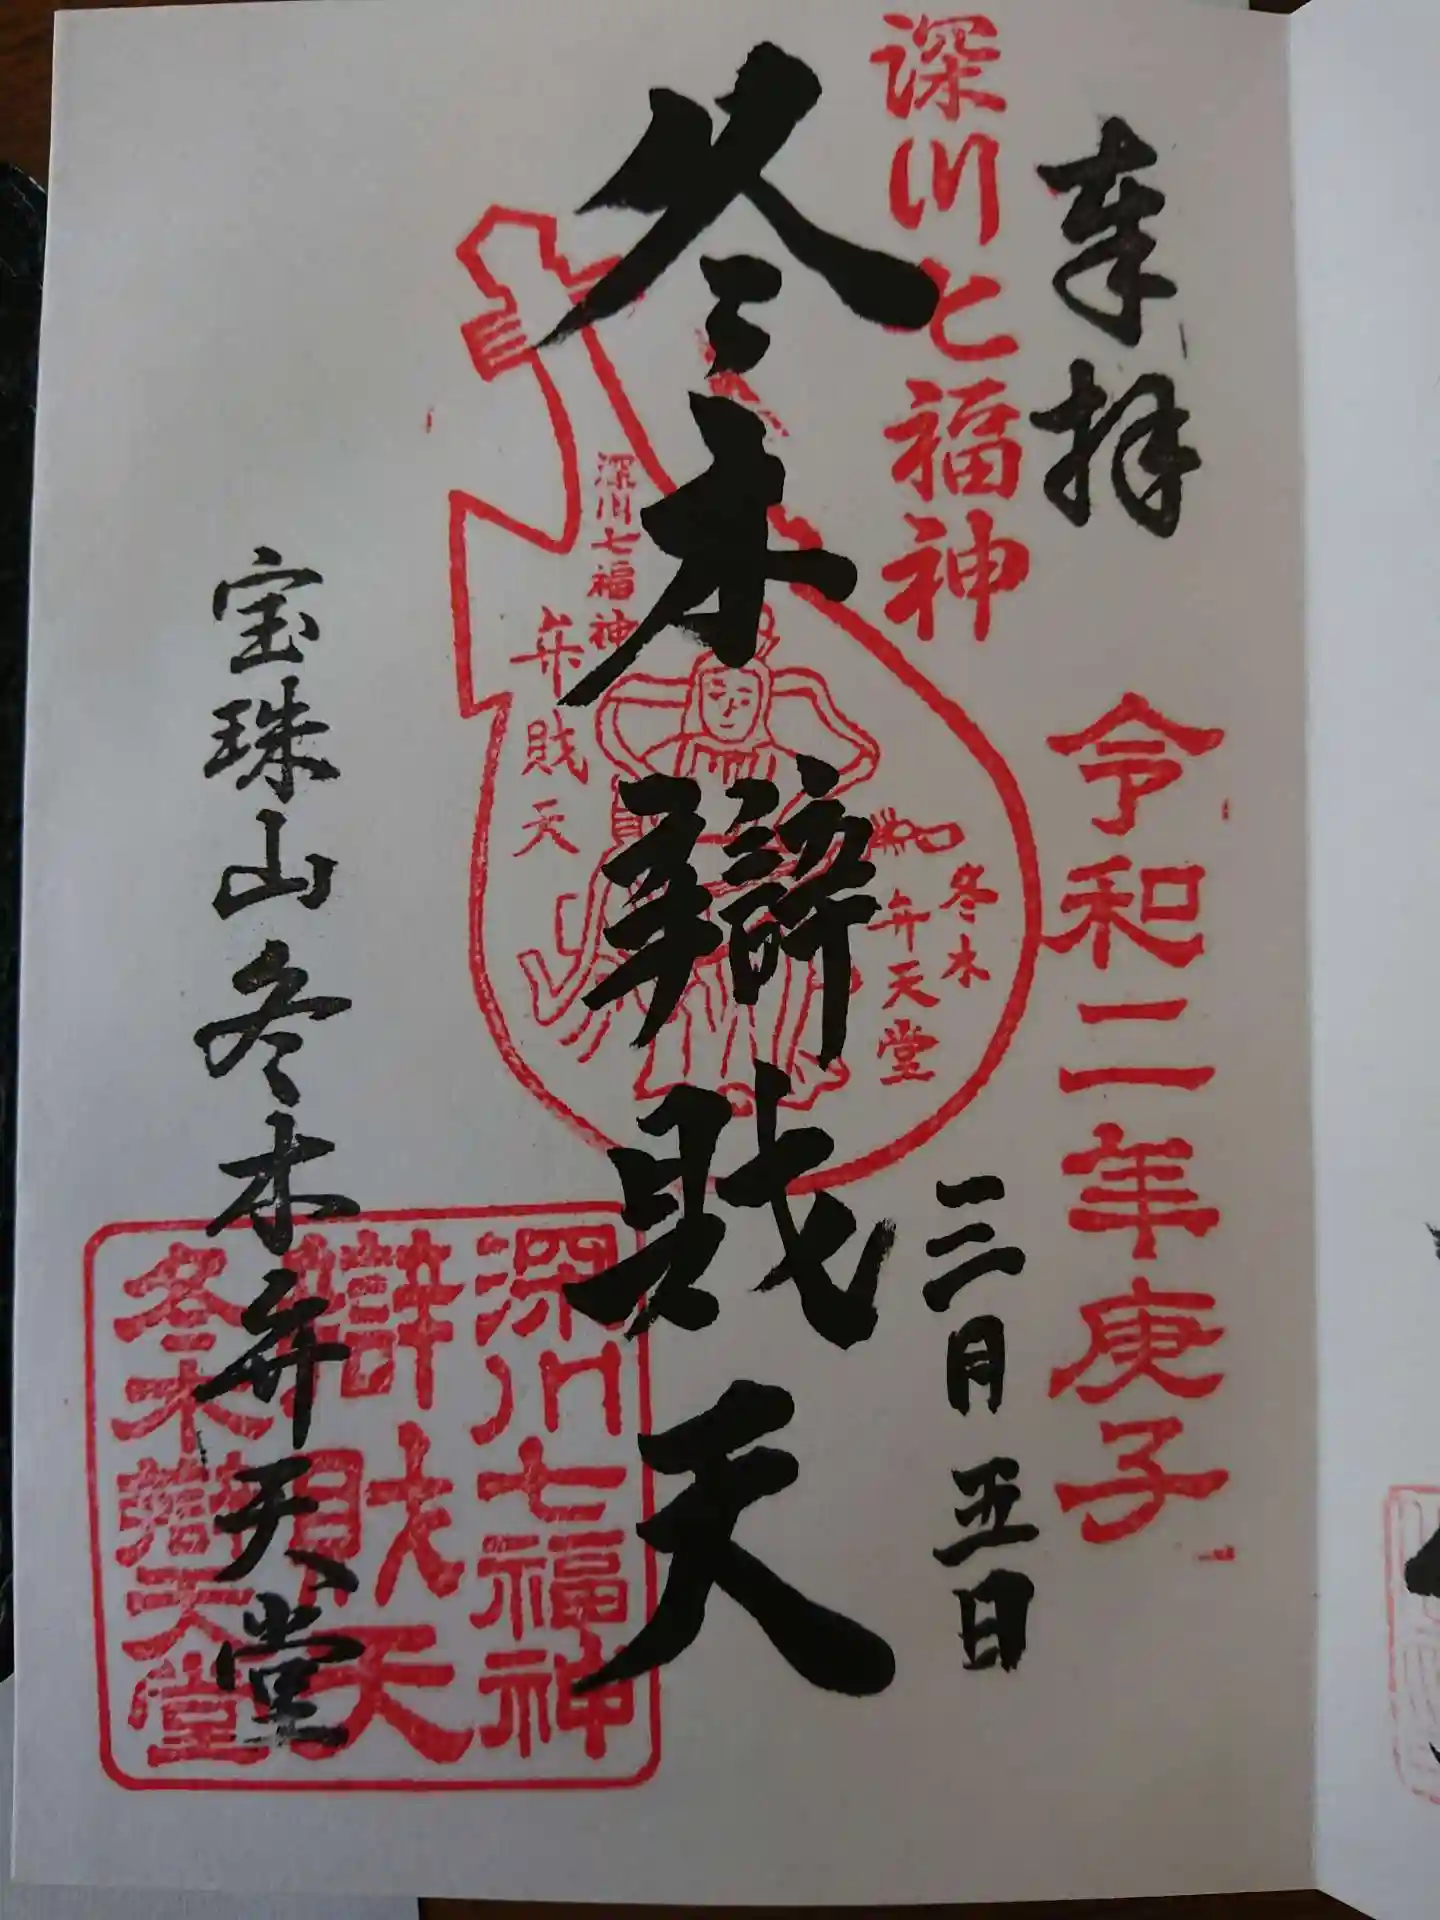 奉拝
令和二年庚子
三月五日
深川七福神
冬木辯財天
深川七福神
弁財天
冬木
弁天堂
宝珠山冬木弁天堂
深川七福神
辯財天
冬木辯天堂